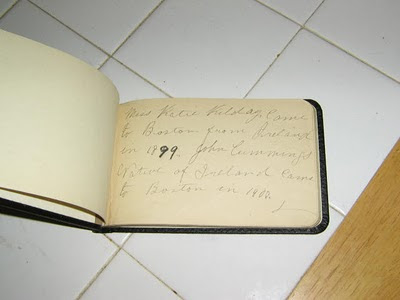 Miss Katie Kilday, Came
to Boston from Ireland
in 1899. John Cummings
Native of Ireland Came
to Boston in 1900.